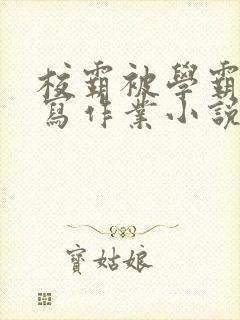 校霸被學霸
寫作業小說
寶姑娘